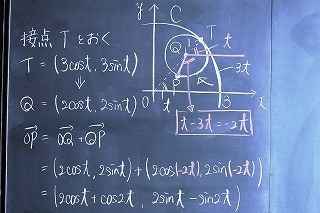 接点 T とおく
T = (3cost, 3sint)
↓
Q = (2cost, 2sint)
OP = OQ + QP
= (2cost, 2sint) + (2cos(-2t), 2sin(-2t))
= (2cost + cos2t, 2sint - sin2t)
y
C
T
t
Q
1
3t
P
t
O
1
3
x
t - 3t = -2t